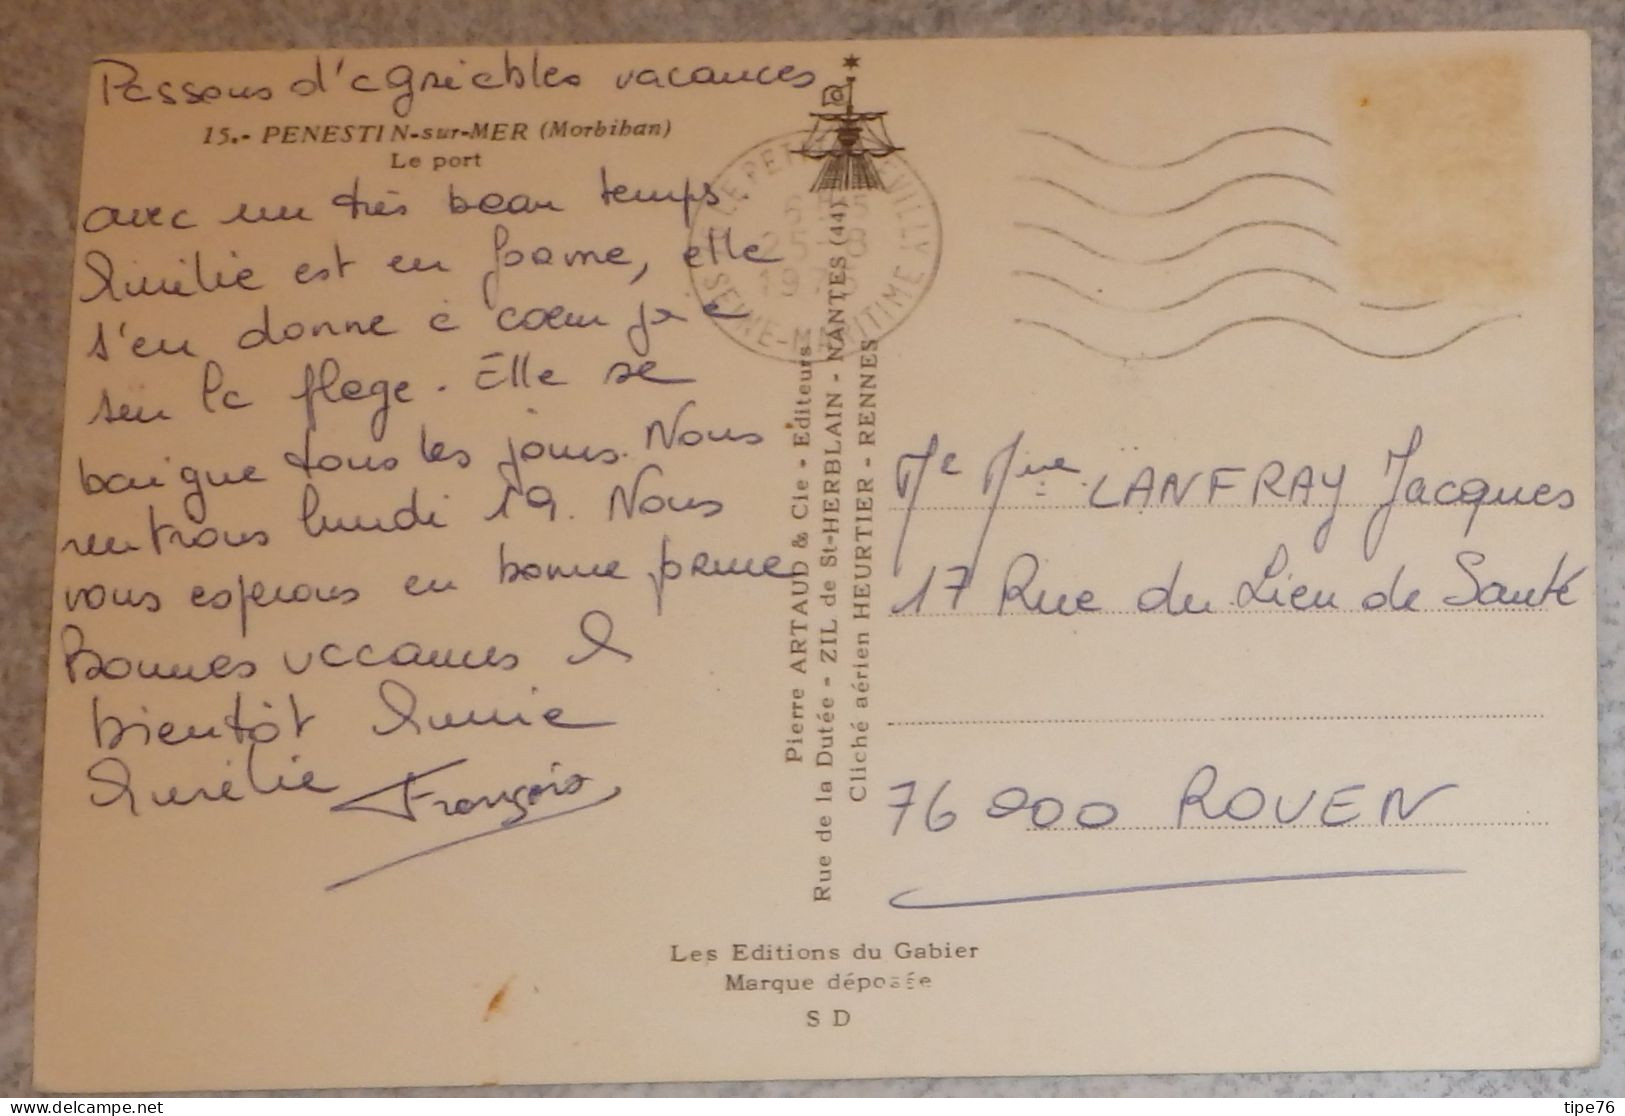 Passons d'agréables vacances
15.- PENESTIN-sur-MER (Morbihan)
Le port
avec un très beau temps.
Aurélie est en forme, elle
s'en donne à cœur joie
sur la plage. Elle se
baigne tous les jours. Nous
rentrons lundi 19. Nous
vous esperons en bonne forme
Bonnes vacances A
bientôt Annie
Aurélie François
LE PETIT QUEVILLY
25 -8
SEINE-MARITIME
Pierre ARTAUD & Cie - Editeurs
Rue de la Dutée - ZIL de St-HERBLAIN - NANTES (44)
Cliché aérien HEURTIER - RENNES
Mr Mme LANFRAY Jacques
17 Rue du Lieu de Santé
76 000 ROUEN
Les Editions du Gabier
Marque déposée
S D
delcampe.net
tipe76